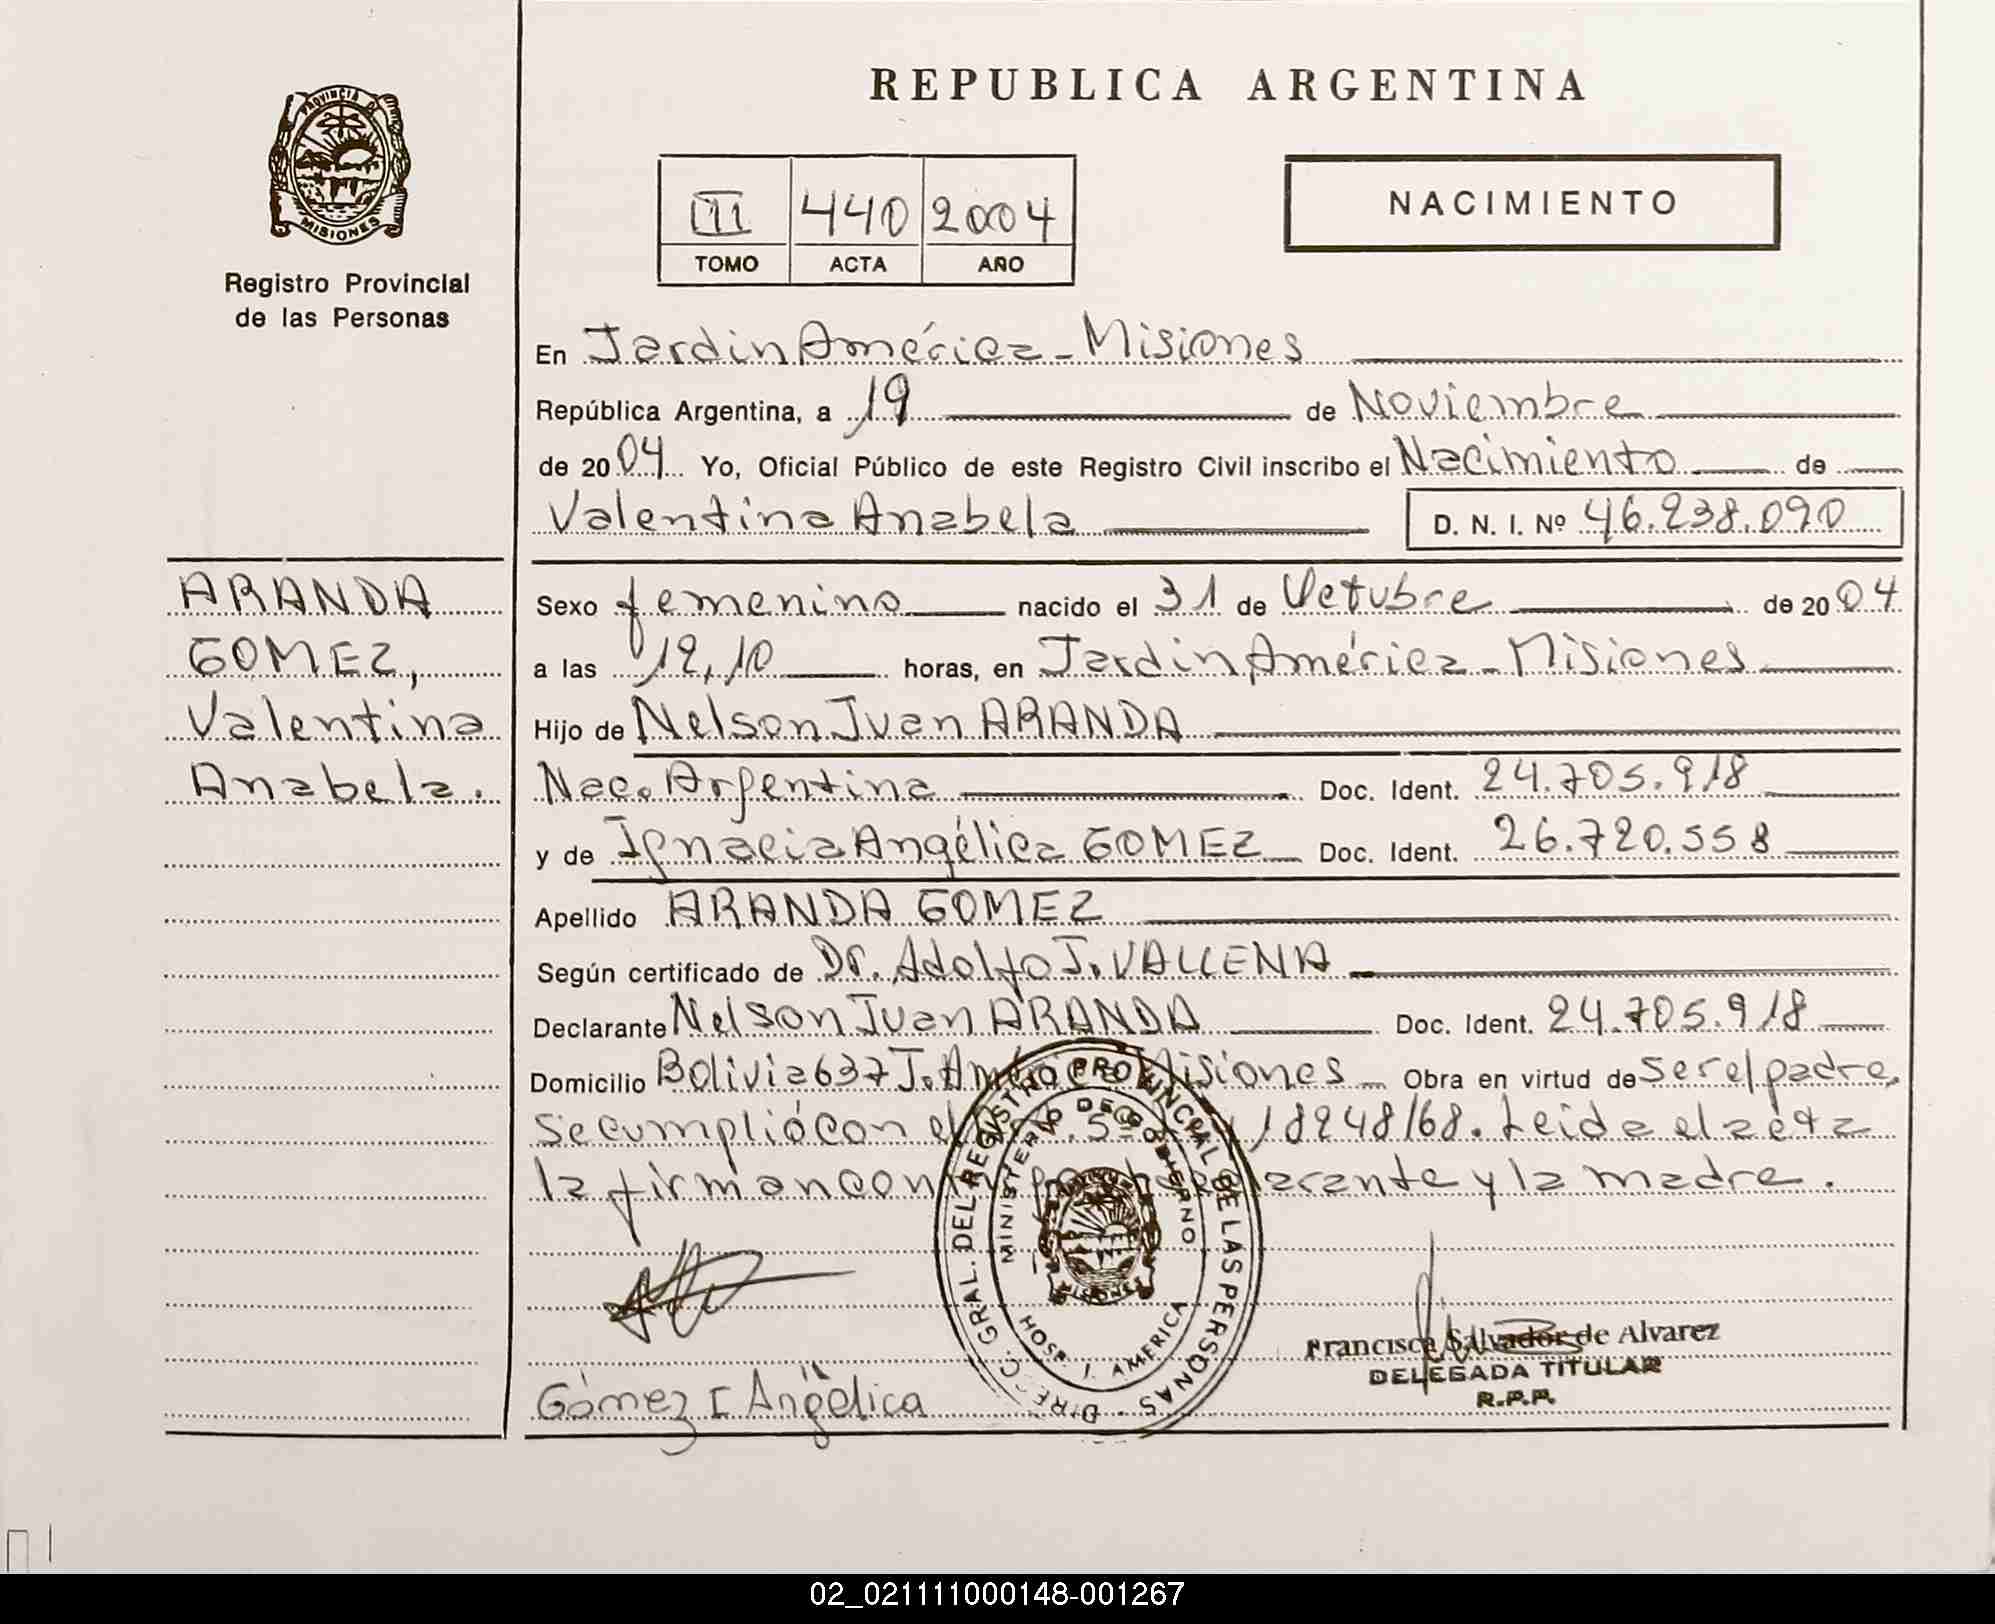 REPUBLICA ARGENTINA
PROVINCIA DE
MISIONES
Registro Provincial
de las Personas
II 440 2004
TOMO ACTA AÑO
NACIMIENTO
En Jardin América - Misiones
República Argentina, a 19 de Noviembre
de 2004 Yo, Oficial Público de este Registro Civil inscribo el Nacimiento de
Valentina Anabela D. N. I. Nº 46.238.090
ARANDA
GOMEZ,
Valentina
Anabela.
Sexo femenino nacido el 31 de Octubre de 2004
a las 12,10 horas, en Jardin América - Misiones
Hijo de Nelson Juan ARANDA
Nac. Argentina Doc. Ident. 24.705.918
y de Ignacia Angélica GOMEZ Doc. Ident. 26.720.558
Apellido ARANDA GOMEZ
Según certificado de Dr. Adolfo J. VALLENA
Declarante Nelson Juan ARANDA Doc. Ident. 24.705.918
Domicilio Bolivia 637 J. América Misiones Obra en virtud de ser el padre,
se cumplió con el 18248/68. Leida el acta
la firman conmigo declarante y la madre.
DIREC. GRAL. DEL REGISTRO PROVINCIAL DE LAS PERSONAS
MINISTERIO DE GOBIERNO
MISIONES
HOSP. J. AMERICA
Francisca Salvador de Alvarez
DELEGADA TITULAR
R.P.P.
Gómez I Angélica
02_021111000148-001267